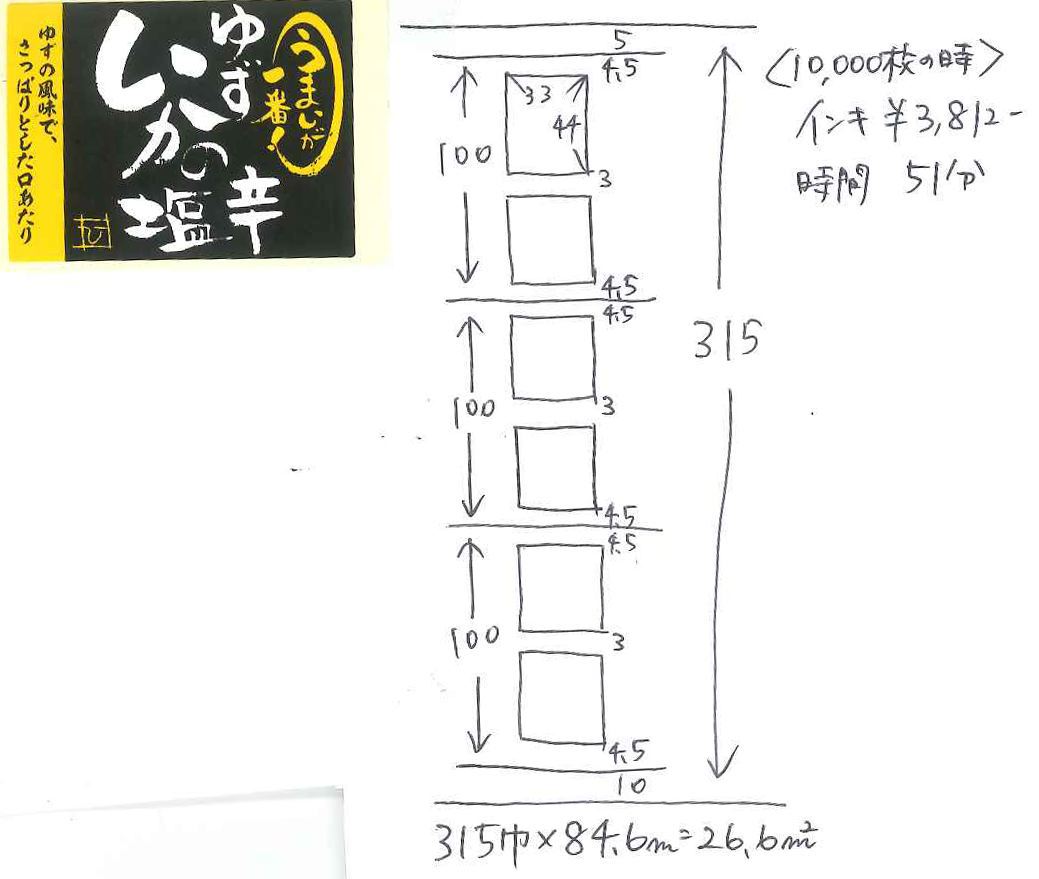 うまいが
一番！
ゆず
いかの
塩辛
ゆずの風味で、
さっぱりとした口あたり
5
4.5
33
44
100
3
4.5
4.5
100
3
4.5
4.5
100
3
4.5
10
315
315巾×84.6m=26.6m²
〈10,000枚の時〉
インキ ¥3,812-
時間 51分